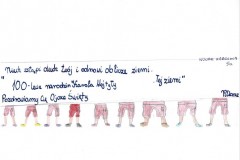 Niech zstąpi duch Twój i odnowi oblicze ziemi.
"Tej ziemi"
100-lecie narodzin Karola Wojtyły
Pozdrawiamy Cię Ojcze Święty